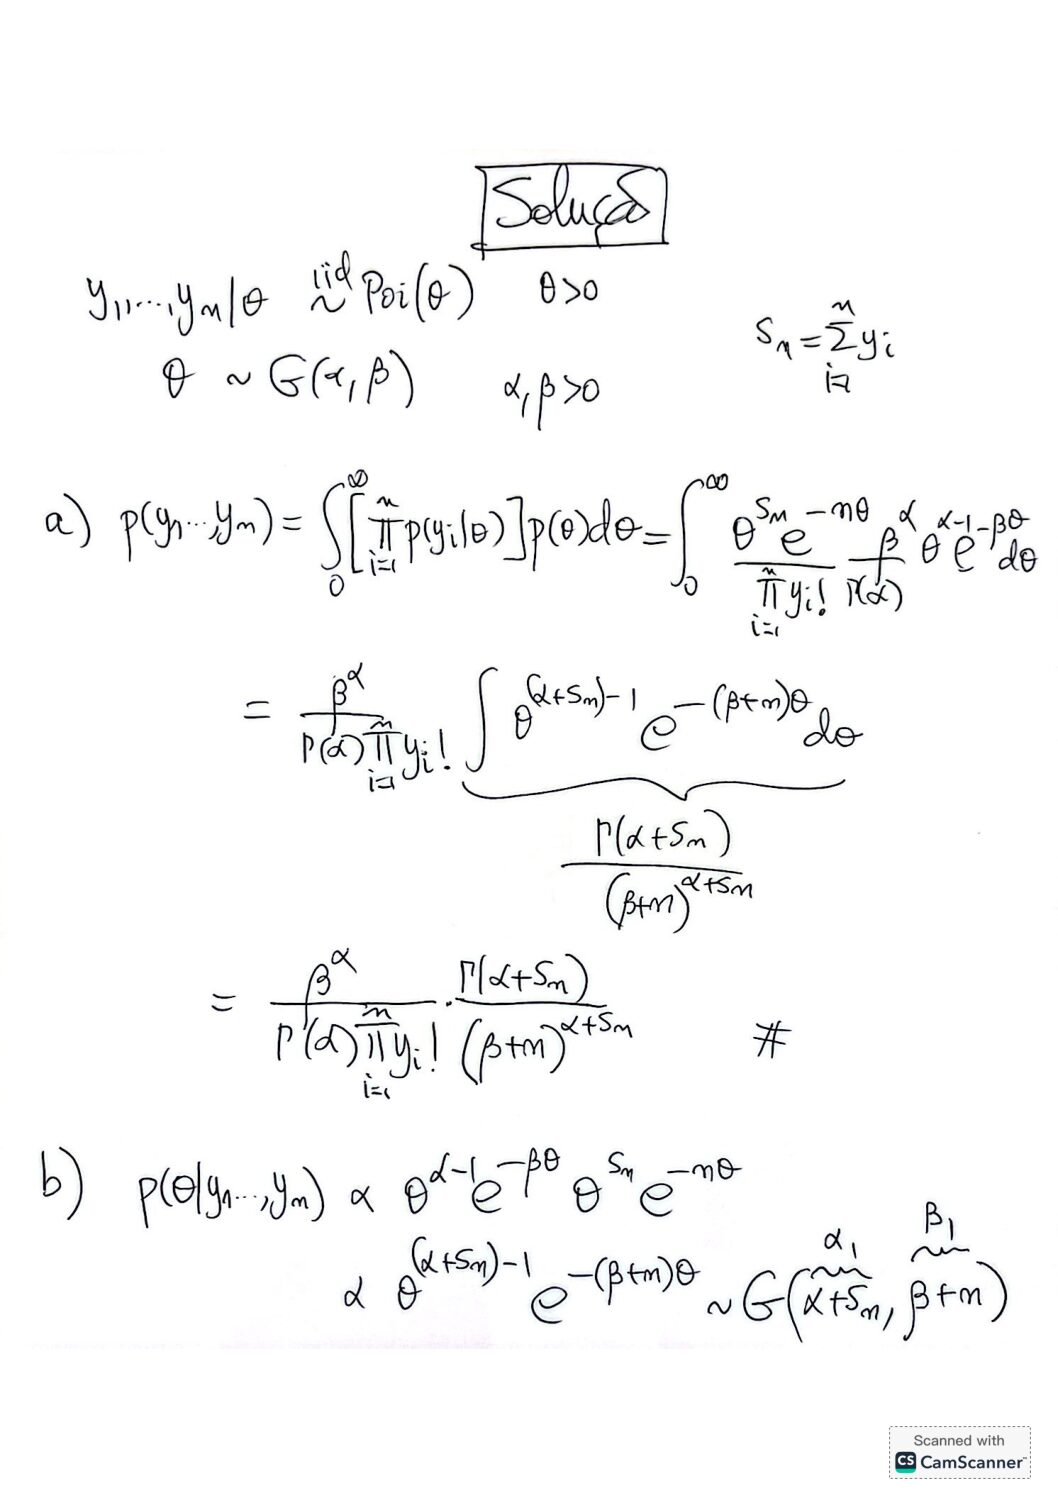 Solução
y₁,...,yₙ|θ iid ~ Poi(θ) θ>0
Sₙ = Σⁿᵢ₌₁ yᵢ
θ ~ G(α,β) α,β>0
a) p(y₁...,yₙ) = ∫₀^∞ [∏ⁿᵢ₌₁ p(yᵢ|θ)] p(θ)dθ = ∫₀^∞ θ^{Sₙ} e^{-nθ} / ∏ⁿᵢ₌₁ yᵢ! β^α / Γ(α) θ^{α-1} e^{-βθ} dθ
= β^α / Γ(α) ∏ⁿᵢ₌₁ yᵢ! ∫ θ^{(α+Sₙ)-1} e^{-(β+n)θ} dθ
Γ(α+Sₙ) / (β+n)^{α+Sₙ}
= β^α / Γ(α) ∏ⁿᵢ₌₁ yᵢ! · Γ(α+Sₙ) / (β+n)^{α+Sₙ} #
b) p(θ|y₁...,yₙ) ∝ θ^{α-1} e^{-βθ} θ^{Sₙ} e^{-nθ}
α₁ β₁
∝ θ^{(α+Sₙ)-1} e^{-(β+n)θ} ~ G(α+Sₙ, β+n)
Scanned with
CS CamScanner™